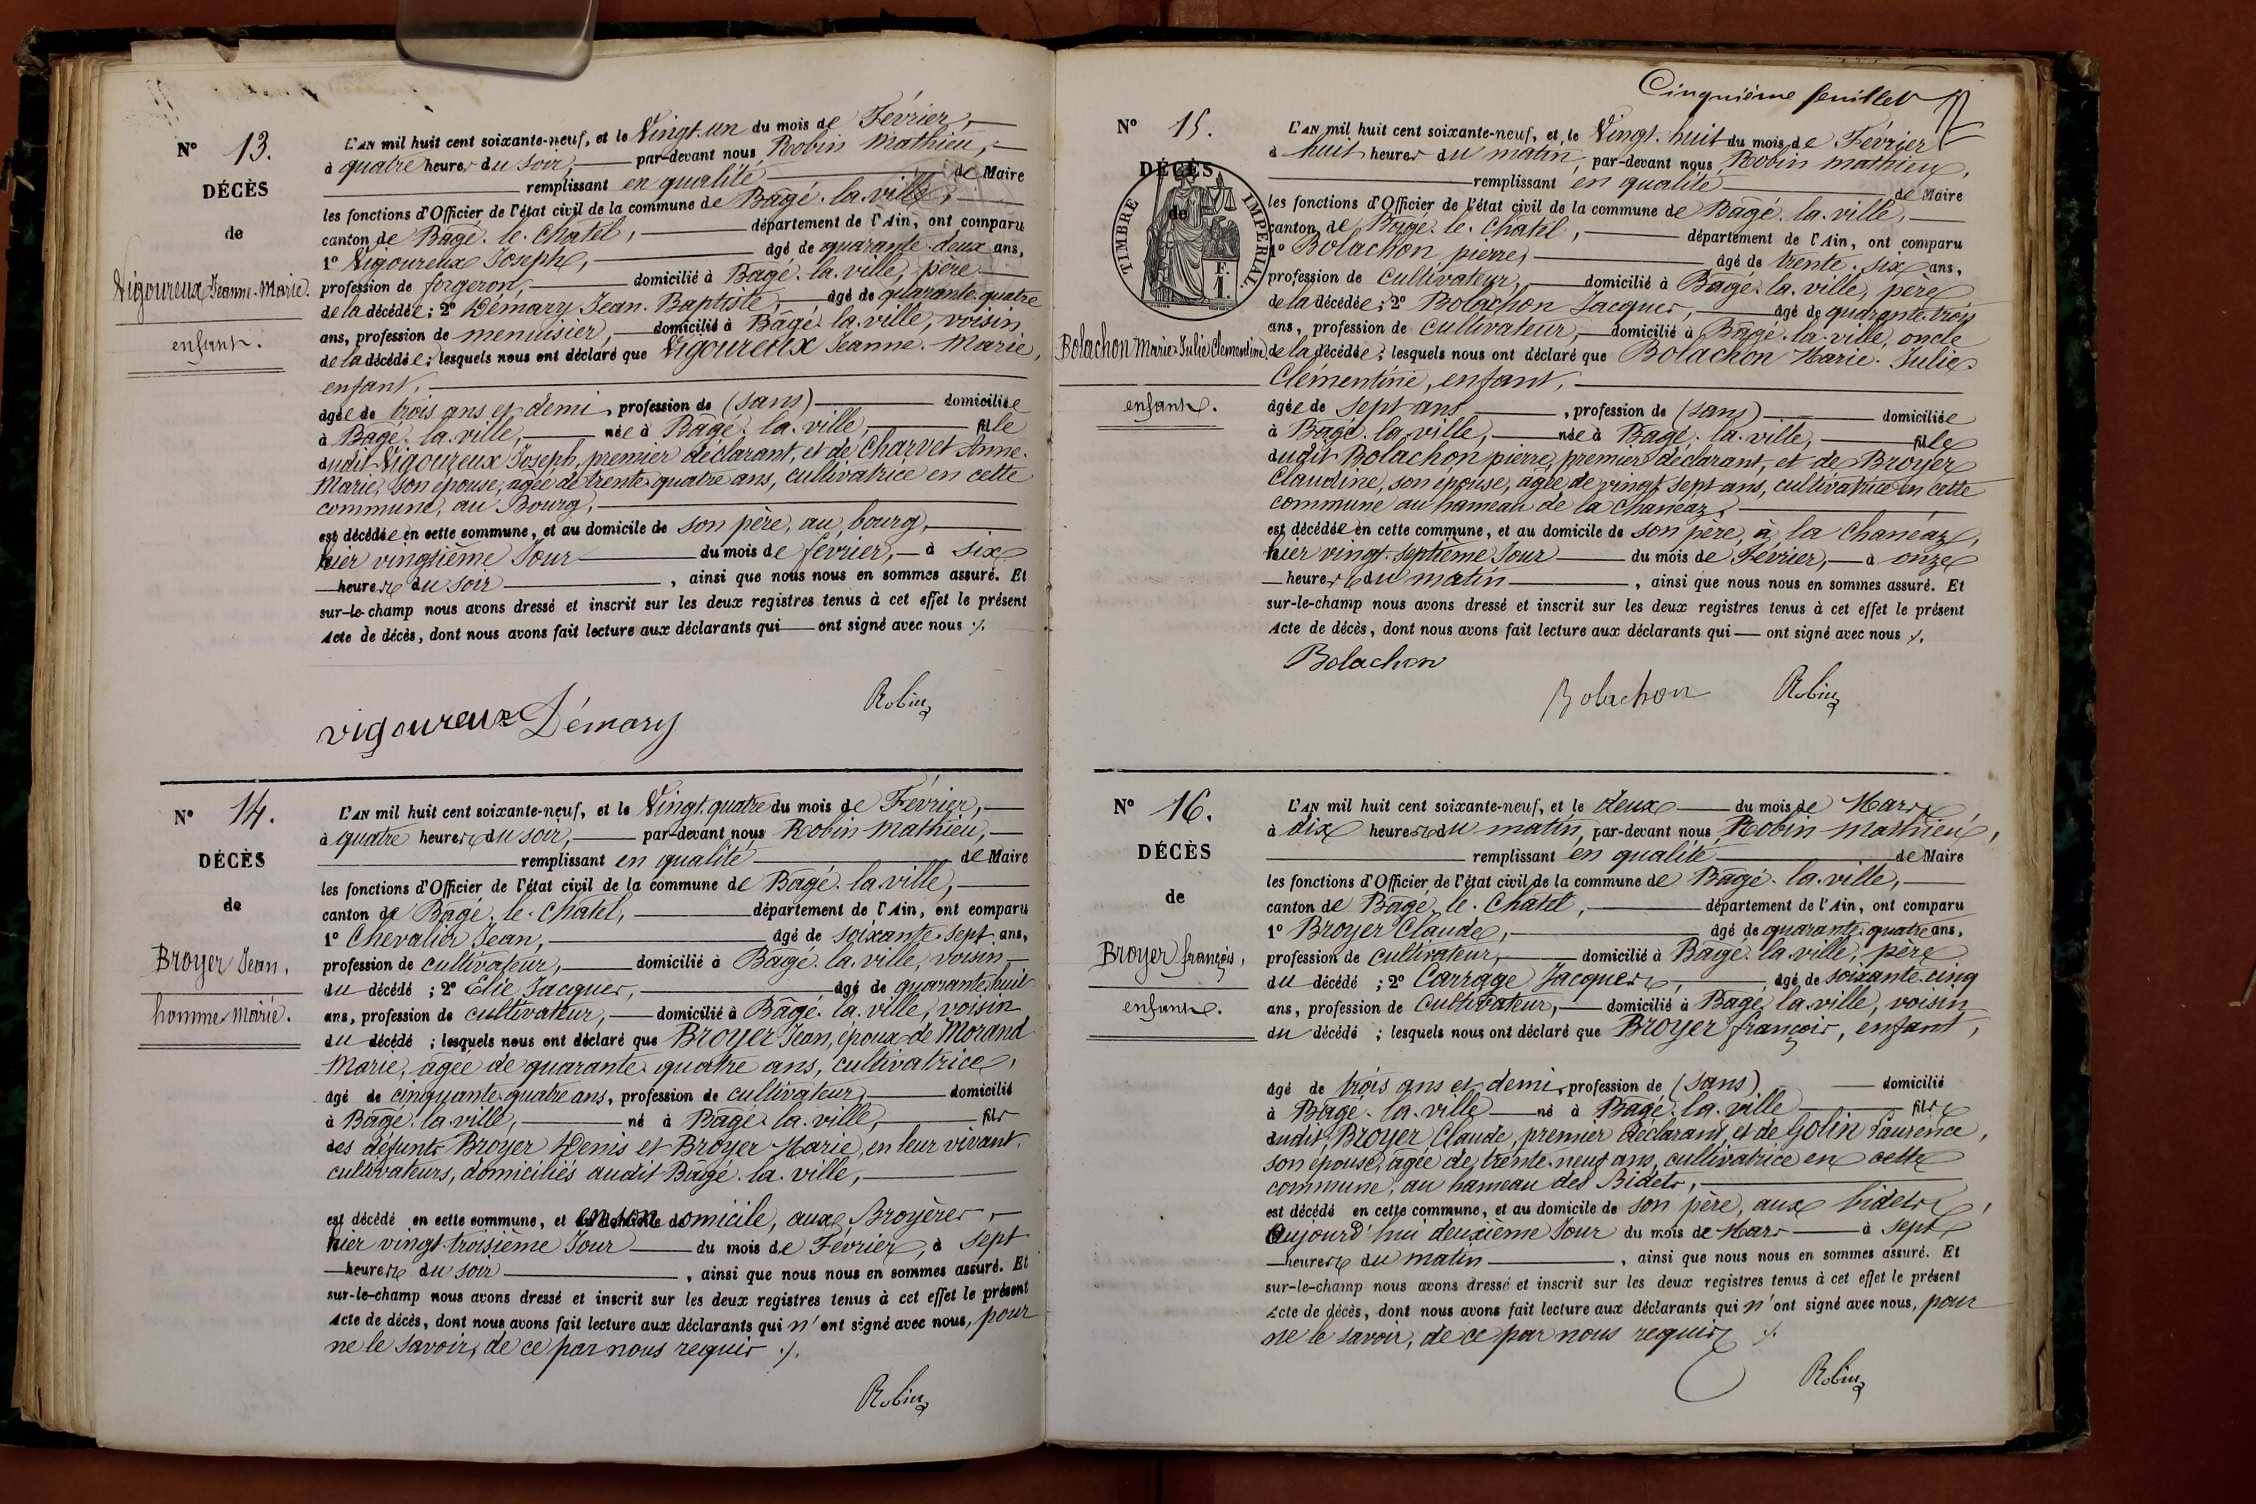 N° 13.
DÉCÈS
de
Vigoureux Jeanne-Marie.
enfant.
L'AN mil huit cent soixante-neuf, et le Vingt-un du mois de Février,
à quatre heures du soir, par-devant nous Robin Mathieu,
remplissant en qualité de Maire
les fonctions d'Officier de l'état civil de la commune de Bâgé-la-ville,
canton de Bâgé-le-Chatel, département de l'Ain, ont comparu
1° Vigoureux Joseph, âgé de quarante-deux ans,
profession de forgeron, domicilié à Bâgé-la-ville, père
de la décédée ; 2° Démary Jean-Baptiste, âgé de quarante-quatre
ans, profession de menuisier, domicilié à Bâgé-la-ville, voisin
de la décédée ; lesquels nous ont déclaré que Vigoureux Jeanne-Marie,
enfant,
âgée de trois ans et demi, profession de (sans) domiciliée
à Bâgé-la-ville, née à Bâgé-la-ville, fille
dudit Vigoureux Joseph, premier déclarant, et de Charvet Anne-
Marie, son épouse, âgée de trente-quatre ans, cultivatrice en cette
commune, au Bourg,
est décédée en cette commune, et au domicile de son père, au bourg,
hier vingtième Jour du mois de février, à six
heures du soir, ainsi que nous nous en sommes assuré. Et
sur-le-champ nous avons dressé et inscrit sur les deux registres tenus à cet effet le présent
Acte de décès, dont nous avons fait lecture aux déclarants qui ont signé avec nous ./.
Robin
vigoureux Démary
N° 14.
DÉCÈS
de
Broyer Jean,
homme Marié.
L'AN mil huit cent soixante-neuf, et le Vingt-quatre du mois de Février,
à quatre heures du soir, par-devant nous Robin Mathieu,
remplissant en qualité de Maire
les fonctions d'Officier de l'état civil de la commune de Bâgé-la-ville,
canton de Bâgé-le-Chatel, département de l'Ain, ont comparu
1° Chevalier Jean, âgé de soixante-sept ans,
profession de cultivateur, domicilié à Bâgé-la-ville, voisin
du décédé ; 2° Elie Jacques, âgé de quarante-huit
ans, profession de cultivateur, domicilié à Bâgé-la-ville, voisin
du décédé ; lesquels nous ont déclaré que Broyer Jean, époux de Morand
Marie, âgée de quarante-quatre ans, cultivatrice,
âgé de cinquante-quatre ans, profession de cultivateur, domicilié
à Bâgé-la-ville, né à Bâgé-la-ville, fils
des défunts Broyer Denis et Broyer Marie, en leur vivant,
cultivateurs, domiciliés audit Bâgé-la-ville,
est décédé en cette commune, et en son domicile, aux Broyères,
hier vingt-troisième Jour du mois de Février, à sept
heures du soir, ainsi que nous nous en sommes assuré. Et
sur-le-champ nous avons dressé et inscrit sur les deux registres tenus à cet effet le présent
Acte de décès, dont nous avons fait lecture aux déclarants qui n'ont signé avec nous, pour
ne le savoir, de ce par nous requis ./.
Robin
Cinquième feuillet
N° 15.
DÉCÈS
de
TIMBRE IMPÉRIAL
F.
1.
Bolachon Marie-Julie Clémentine
enfant.
L'AN mil huit cent soixante-neuf, et le Vingt-huit du mois de Février
à huit heures du matin, par-devant nous Robin Mathieu,
remplissant en qualité de Maire
les fonctions d'Officier de l'état civil de la commune de Bâgé-la-ville,
canton de Bâgé-le-Chatel, département de l'Ain, ont comparu
1° Bolachon pierre, âgé de trente-six ans,
profession de cultivateur, domicilié à Bâgé-la-ville, père
de la décédée ; 2° Bolachon Jacques, âgé de quarante-trois
ans, profession de cultivateur, domicilié à Bâgé-la-ville, oncle
de la décédée ; lesquels nous ont déclaré que Bolachon Marie-Julie
Clémentine, enfant,
âgée de sept ans, profession de (sans) domiciliée
à Bâgé-la-ville, née à Bâgé-la-ville, fille
dudit Bolachon pierre, premier déclarant, et de Broyer
Claudine, son épouse, âgée de vingt-sept ans, cultivatrice en cette
commune au hameau de la Chanéaz,
est décédée en cette commune, et au domicile de son père, à la Chanéaz,
hier vingt-septième Jour du mois de Février, à onze
heures du matin, ainsi que nous nous en sommes assuré. Et
sur-le-champ nous avons dressé et inscrit sur les deux registres tenus à cet effet le présent
Acte de décès, dont nous avons fait lecture aux déclarants qui ont signé avec nous ./.
Bolachon
Bolachon Robin
N° 16.
DÉCÈS
de
Broyer françois,
enfant.
L'AN mil huit cent soixante-neuf, et le deux du mois de Mars,
à dix heures du matin, par-devant nous Robin Mathieu,
remplissant en qualité de Maire
les fonctions d'Officier de l'état civil de la commune de Bâgé-la-ville,
canton de Bâgé-le-Chatel, département de l'Ain, ont comparu
1° Broyer Claude, âgé de quarante-quatre ans,
profession de cultivateur, domicilié à Bâgé-la-ville, père
du décédé ; 2° Carrage Jacques, âgé de soixante-cinq
ans, profession de Cultivateur, domicilié à Bâgé-la-ville, voisin
du décédé ; lesquels nous ont déclaré que Broyer françois, enfant,
âgé de trois ans et demi, profession de (sans) domicilié
à Bâgé-la-ville né à Bâgé-la-ville fils
dudit Broyer Claude, premier déclarant, et de Golin Laurence,
son épouse, âgée de trente-neuf ans, cultivatrice en cette
commune, au hameau des Bidets,
est décédé en cette commune, et au domicile de son père, aux bidets,
Aujourd'hui deuxième Jour du mois de Mars à sept
heures du matin, ainsi que nous nous en sommes assuré. Et
sur-le-champ nous avons dressé et inscrit sur les deux registres tenus à cet effet le présent
Acte de décès, dont nous avons fait lecture aux déclarants qui n'ont signé avec nous, pour
ne le savoir, de ce par nous requis ./.
Robin